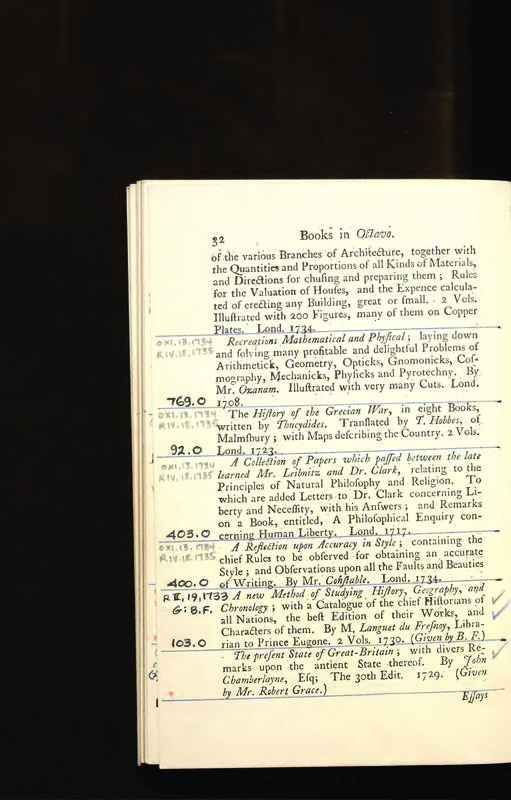 32 Books in Octavo.
of the various Branches of Architecture, together with
the Quantities and Proportions of all Kinds of Materials,
and Directions for chusing and preparing them ; Rules
for the Valuation of Houses, and the Expence calcula-
ted of erecting any Building, great or small. 2 Vols.
Illustrated with 200 Figures, many of them on Copper
Plates. Lond. 1734.
OXI.13.1734 Recreations Mathematical and Physical ; laying down
RIV.18.1735 and solving many profitable and delightful Problems of
Arithmetick, Geometry, Opticks, Gnomonicks, Cos-
mography, Mechanicks, Physicks and Pyrotechny. By
Mr. Ozanam. Illustrated with very many Cuts. Lond.
769.O 1708.
OXI.13.1734 The History of the Grecian War, in eight Books,
RIV.18.1735 written by Thucydides. Translated by T. Hobbes, of
Malmsbury ; with Maps describing the Country. 2 Vols.
92.O Lond. 1723.
OXI.13.1734 A Collection of Papers which passed between the late
RIV.18.1735 learned Mr. Leibnitz and Dr. Clark, relating to the
Principles of Natural Philosophy and Religion. To
which are added Letters to Dr. Clark concerning Li-
berty and Necessity, with his Answers ; and Remarks
on a Book, entitled, A Philosophical Enquiry con-
403.O cerning Human Liberty. Lond. 1717.
OXI.13.1734 A Reflection upon Accuracy in Style ; containing the
RIV.18.1735 chief Rules to be observed for obtaining an accurate
Style ; and Observations upon all the Faults and Beauties
400.O of Writing. By Mr. Constable. Lond. 1734.
RII,19,1733 A new Method of Studying History, Geography, and
G: B.F. Chronology ; with a Catalogue of the chief Historians of
all Nations, the best Edition of their Works, and
Characters of them. By M, Languet du Fresnoy, Libra-
103.O rian to Prince Eugone. 2 Vols. 1730. (Given by B. F.)
The present State of Great-Britain ; with divers Re-
marks upon the antient State thereof. By John
Chamberlayne, Esq; The 30th Edit. 1729. (Given
by Mr. Robert Grace.)
Essays